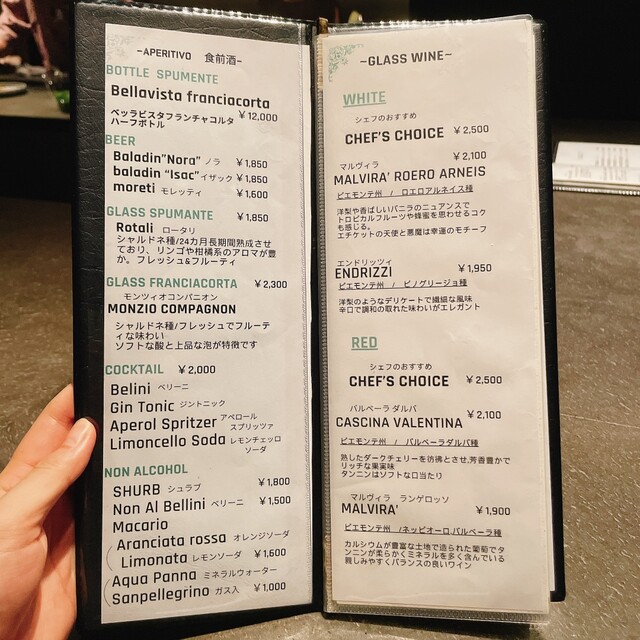 -APERITIVO 食前酒-
BOTTLE SPUMENTE
Bellavista franciacorta
ベッラビスタフランチャコルタ ¥12,000
ハーフボトル
BEER
Baladin"Nora" ノラ ¥1,850
baladin "Isac" イザック ¥1,850
moreti モレッティ ¥1,600
GLASS SPUMANTE ¥1,850
Rotali ロータリ
シャルドネ種/24カ月長期間熟成させ
ており、リンゴや柑橘系のアロマが豊
か。フレッシュ&フルーティ
GLASS FRANCIACORTA ¥2,300
モンツィオコンパニオン
MONZIO COMPAGNON
シャルドネ種/フレッシュでフルーテ
ィな味わい
ソフトな酸と上品な泡が特徴です
COCKTAIL ¥2,000
Belini ベリーニ
Gin Tonic ジントニック
Aperol Spritzer アペロール
スプリッツァ
Limoncello Soda レモンチェッロ
ソーダ
NON ALCOHOL
SHURB シュラブ ¥1,800
Non Al Bellini ベリーニ ¥1,500
Macario
Aranciata rossa オレンジソーダ
Limonata レモンソーダ ¥1,600
Aqua Panna ミネラルウォーター
Sanpellegrino ガス入 ¥1,000
~GLASS WINE~
WHITE
シェフのおすすめ
CHEF'S CHOICE ¥2,500
マルヴィラ ¥2,100
MALVIRA' ROERO ARNEIS
ピエモンテ州 / ロエロアルネイス種
洋梨や香ばしいバニラのニュアンスで
トロピカルフルーツや蜂蜜を思わせるコク
も感じる。
エチケットの天使と悪魔は幸運のモチーフ
エンドリッツィ
ENDRIZZI ¥1,950
ピエモンテ州 / ピノグリージョ種
洋梨のようなデリケートで繊細な風味
辛口で調和の取れた味わいがエレガント
RED
シェフのおすすめ
CHEF'S CHOICE ¥2,500
バルベーラ ダルバ
CASCINA VALENTINA ¥2,100
ピエモンテ州 / バルベーラダルバ種
熟したダークチェリーを彷彿とさせ,芳香豊かで
リッチな果実味
タンニンはソフトな口当たり
マルヴィラ ランゲロッソ
MALVIRA' ¥1,900
ピエモンテ州 /ネッビオーロ,バルベーラ種
カルシウムが豊富な土地で造られた葡萄でタ
ンニンが柔らかくミネラルを多く含んでいる
親しみやすくバランスの良いワイン